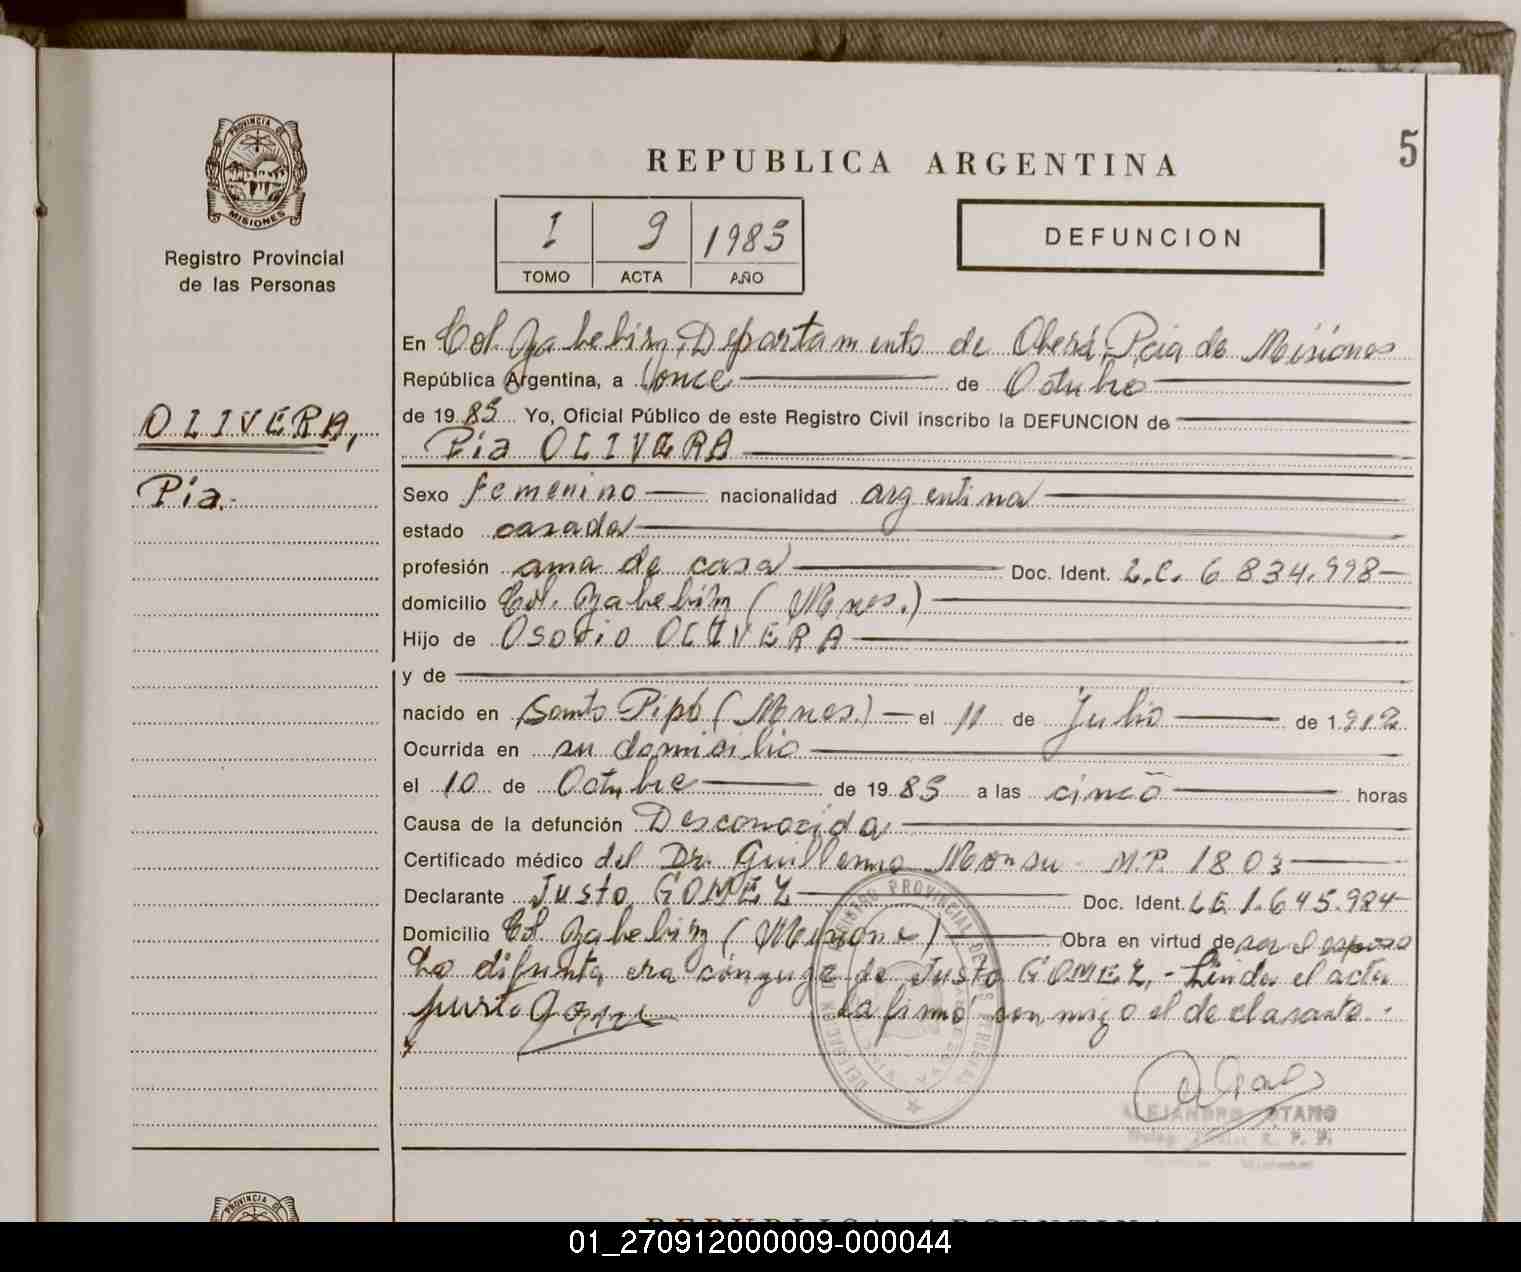 5
PROVINCIA DE
MISIONES
Registro Provincial
de las Personas
REPUBLICA ARGENTINA
1 9 1985
TOMO ACTA AÑO
DEFUNCION
En Col. Yabebiry, Departamento de Oberá, Pcia de Misiones
República Argentina, a once de Octubre
de 1985 Yo, Oficial Público de este Registro Civil inscribo la DEFUNCION de
Pía OLIVERA
OLIVERA,
Pía.-
Sexo femenino nacionalidad argentina
estado casada
profesión ama de casa Doc. Ident. L.C. 6.834.998
domicilio Col. Yabebiry (Mnes.)
Hijo de Osorio OLIVERA
y de
nacido en Santo Pipó (Mnes.) el 11 de Julio de 1.912
Ocurrida en su domicilio
el 10 de Octubre de 1985 a las cinco horas
Causa de la defunción Desconocida
Certificado médico del Dr. Guillermo M.P. 1803
Declarante Justo GOMEZ Doc. Ident. L.E. 1.645.984
Domicilio Col. Yabebiry (Misiones) Obra en virtud de ser el esposo
La difunta era cónyuge de Justo GOMEZ.- Leída el acta
Justo Gomez la firmó conmigo el declarante.-
REGISTRO PROVINCIAL DE LAS PERSONAS
ALEJANDRO OTAÑO
PROVINCIA DE
REPUBLICA ARGENTINA
01_270912000009-000044